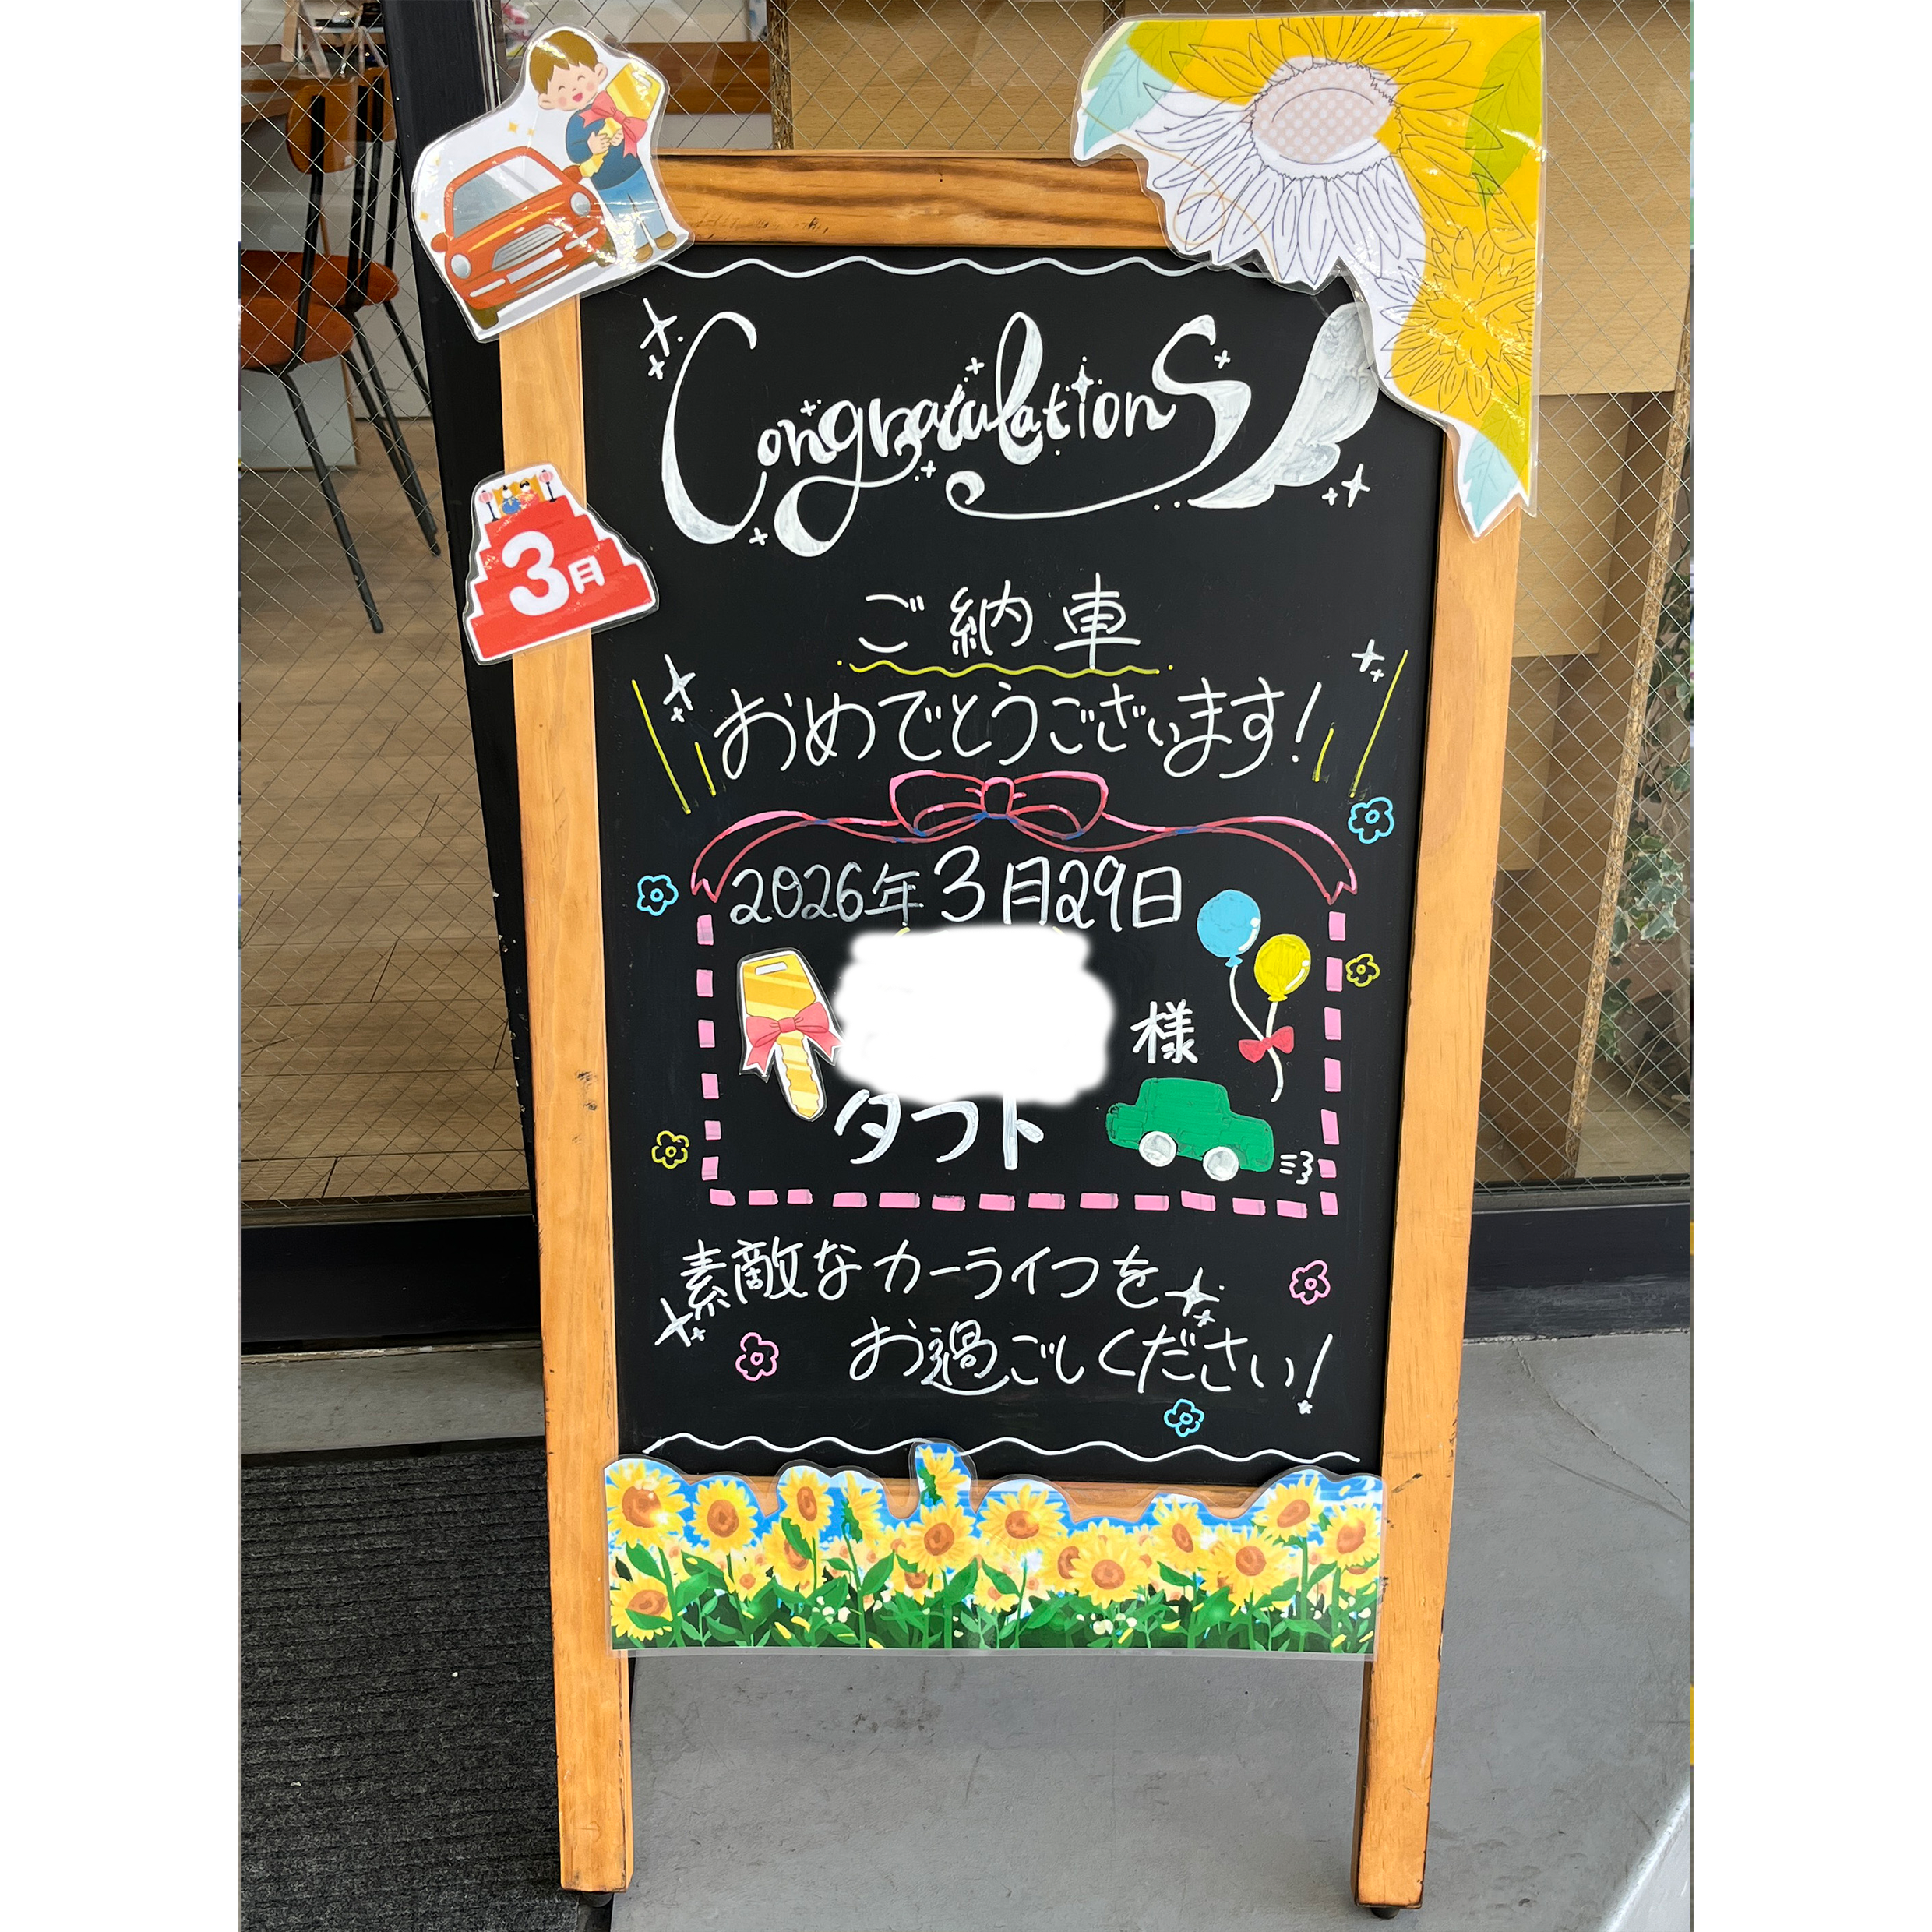 Congratulations
3月
ご納車
おめでとうございます!
2026年3月29日
様
タフト
素敵なカーライフを
お過ごしください!